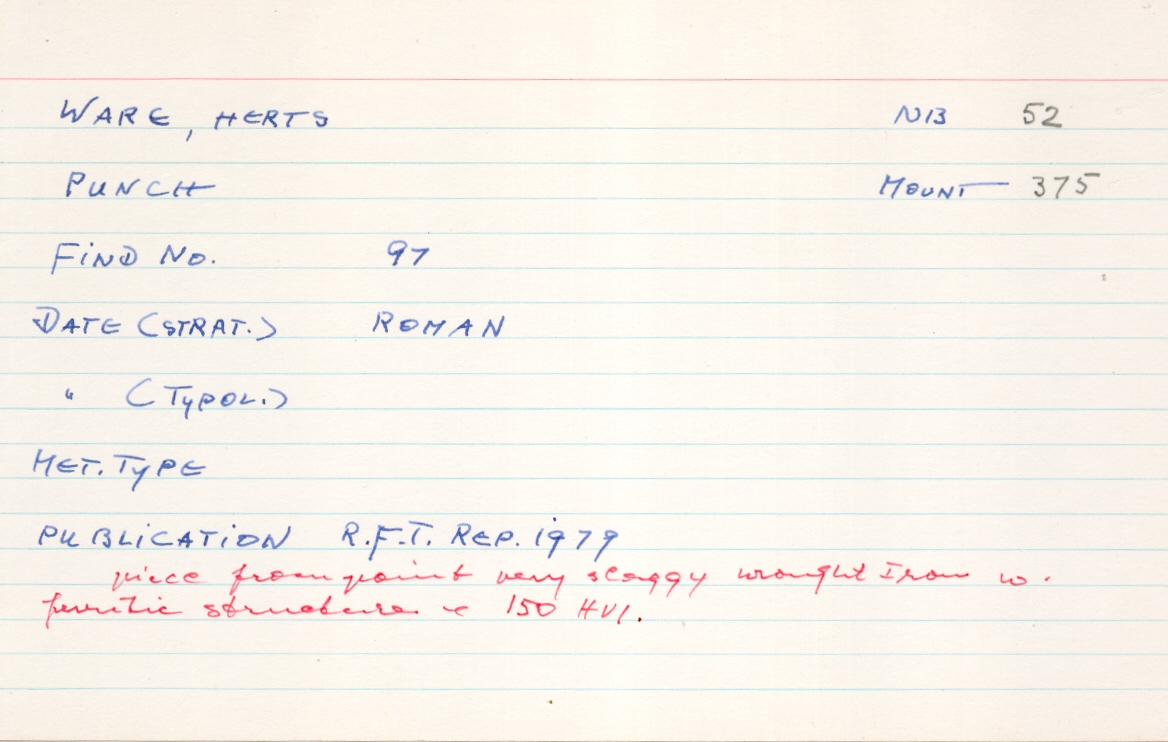 WARE, HERTS NB 52
PUNCH MOUNT 375
FIND NO. 97
DATE (STRAT.) ROMAN
" (TYPOL.)
MET. TYPE
PUBLICATION R.F.T. REP. 1979
piece from point very slaggy wrought Iron w.
ferritic structure 150 HV1.